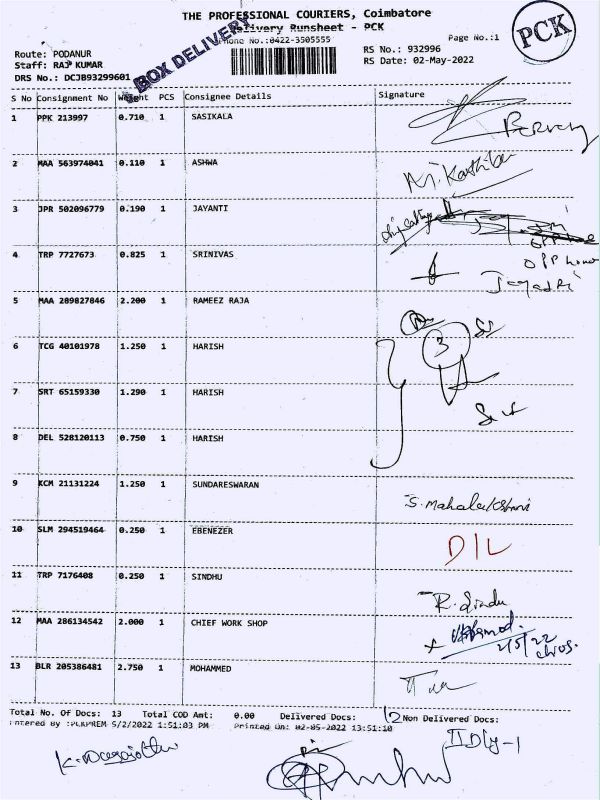 THE PROFESSIONAL COURIERS, Coimbatore
Delivery Runsheet - PCK
Phone No.:0422-3505555
Page No.:1
PCK
BOX DELIVERY
Route: PODANUR
Staff: RAJ KUMAR
DRS No.: DCJB93299601
RS No.: 932996
RS Date: 02-May-2022
S No Consignment No Weight PCS Consignee Details Signature
1 PPK 213997 0.710 1 SASIKALA
2 MAA 563974041 0.110 1 ASHWA
3 JPR 502096779 0.190 1 JAYANTI
4 TRP 7727673 0.825 1 SRINIVAS
OPP home
Jayadri
5 MAA 289827846 2.200 1 RAMEEZ RAJA
6 TCG 40101978 1.250 1 HARISH
3
7 SRT 65159330 1.290 1 HARISH
8 DEL 528120113 0.750 1 HARISH
9 KCM 21131224 1.250 1 SUNDARESWARAN
S. Mahalakshmi
10 SLM 294519464 0.250 1 EBENEZER
D/L
11 TRP 7176408 0.250 1 SINDHU
R. Sindu
12 MAA 286134542 2.000 1 CHIEF WORK SHOP
2/5/22
13 BLR 205386481 2.750 1 MOHAMMED
Total No. Of Docs: 13 Total COD Amt: 0.00 Delivered Docs: 12 Non Delivered Docs:
Entered By :PCKPREM 5/2/2022 1:51:03 PM Printed On: 02-05-2022 13:51:10
II Dly-1